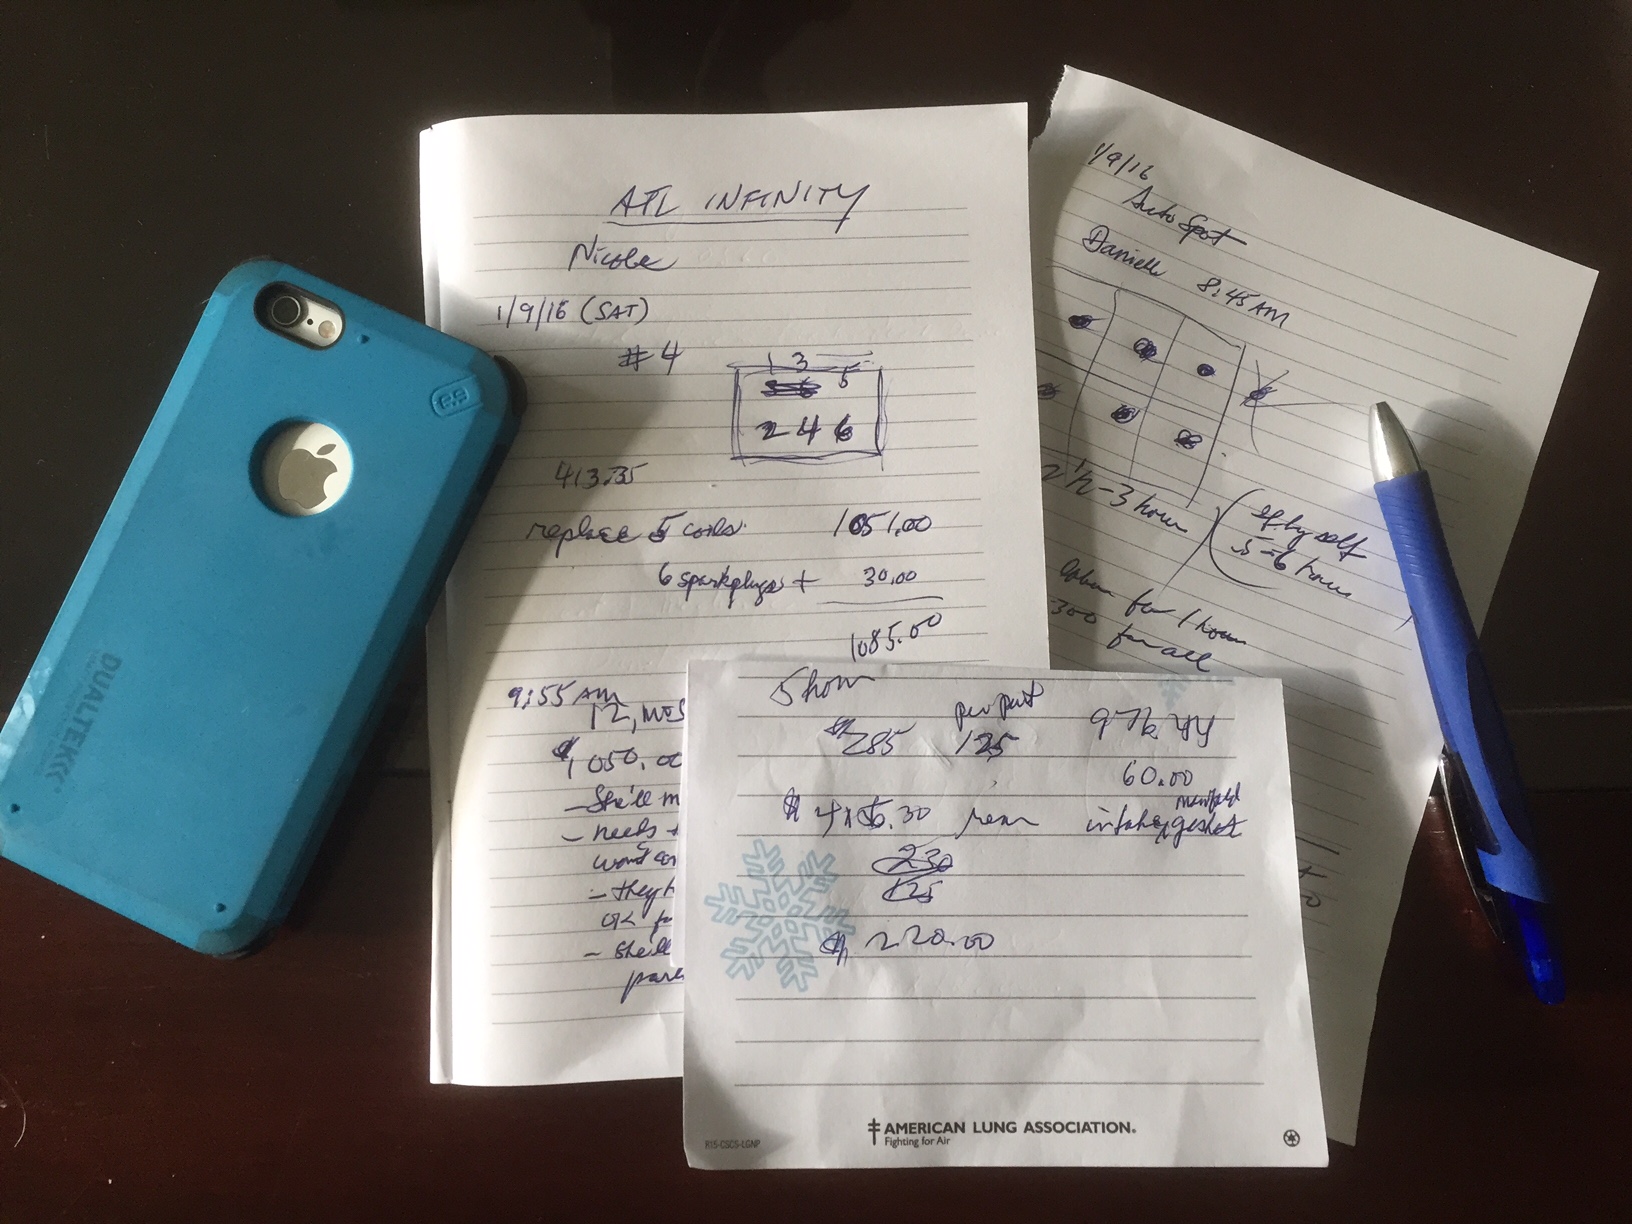 ATL INFINITY
Nicole
1/9/16 (SAT)
#4
1 3
5
2 4 6
413.35
replace 5 coils 1051.00
6 sparkplugs + 30.00
1085.00
9:55 AM
12,
$1050.00
- She'll m
- needs
- they
OK fo
- She'll
1/9/16
Auto Spot
Danielle
8:45 AM
2 1/2 - 3 hour
If by self
5-6 hours
for 1 hour
300 for all
5 hour
per part
$285 125
60.00
manifold
intake gasket
rear
230
125
$220.00
AMERICAN LUNG ASSOCIATION®
Fighting for Air
R15-CSCS-LGNP
DUALTEK